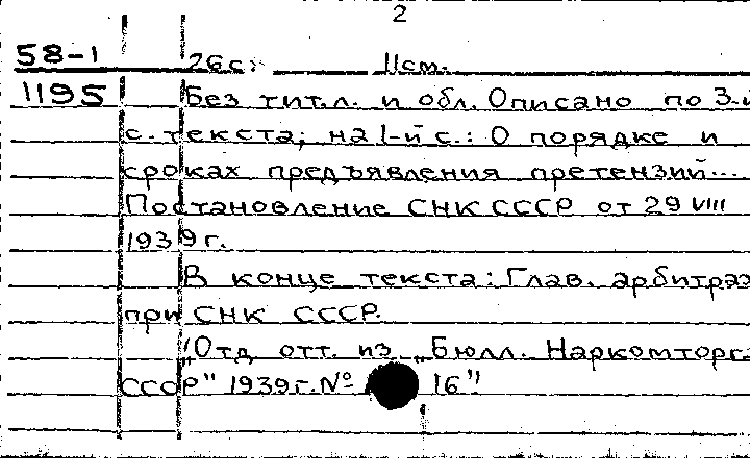 2
58-1 26с. 11см.
1195 Без тит.л. и обл. Описано по 3-й
с. текста; на 1-й с.: О порядке и
сроках предъявления претензий...
Постановление СНК СССР от 29 VIII
1939г.
В конце текста: Глав. арбитраж
при СНК СССР.
"Отд. отт. из „Бюлл. Наркомторга
СССР" 1939г. № 16"